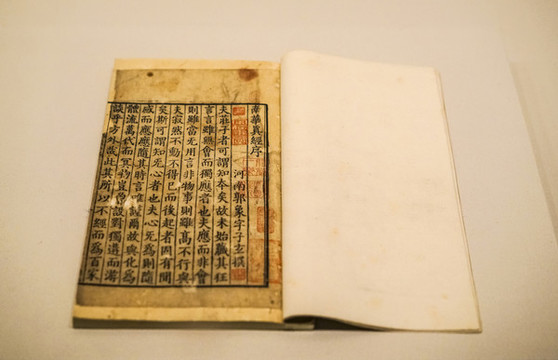 南華真經序
河南郭象字子玄撰
夫莊子者可謂知本矣故未始藏其狂
言言雖無會而獨應者也夫應而非會
則雖當无用言非物事則雖高不行與
夫寂然不動不得已而後起者固有間
矣斯可謂知无心者也夫心无為則隨
感而應應隨其時言唯謹爾故與化為
體流萬代而冥物豈曾設對獨遘而游
談乎方外哉此其所以不經而為百家